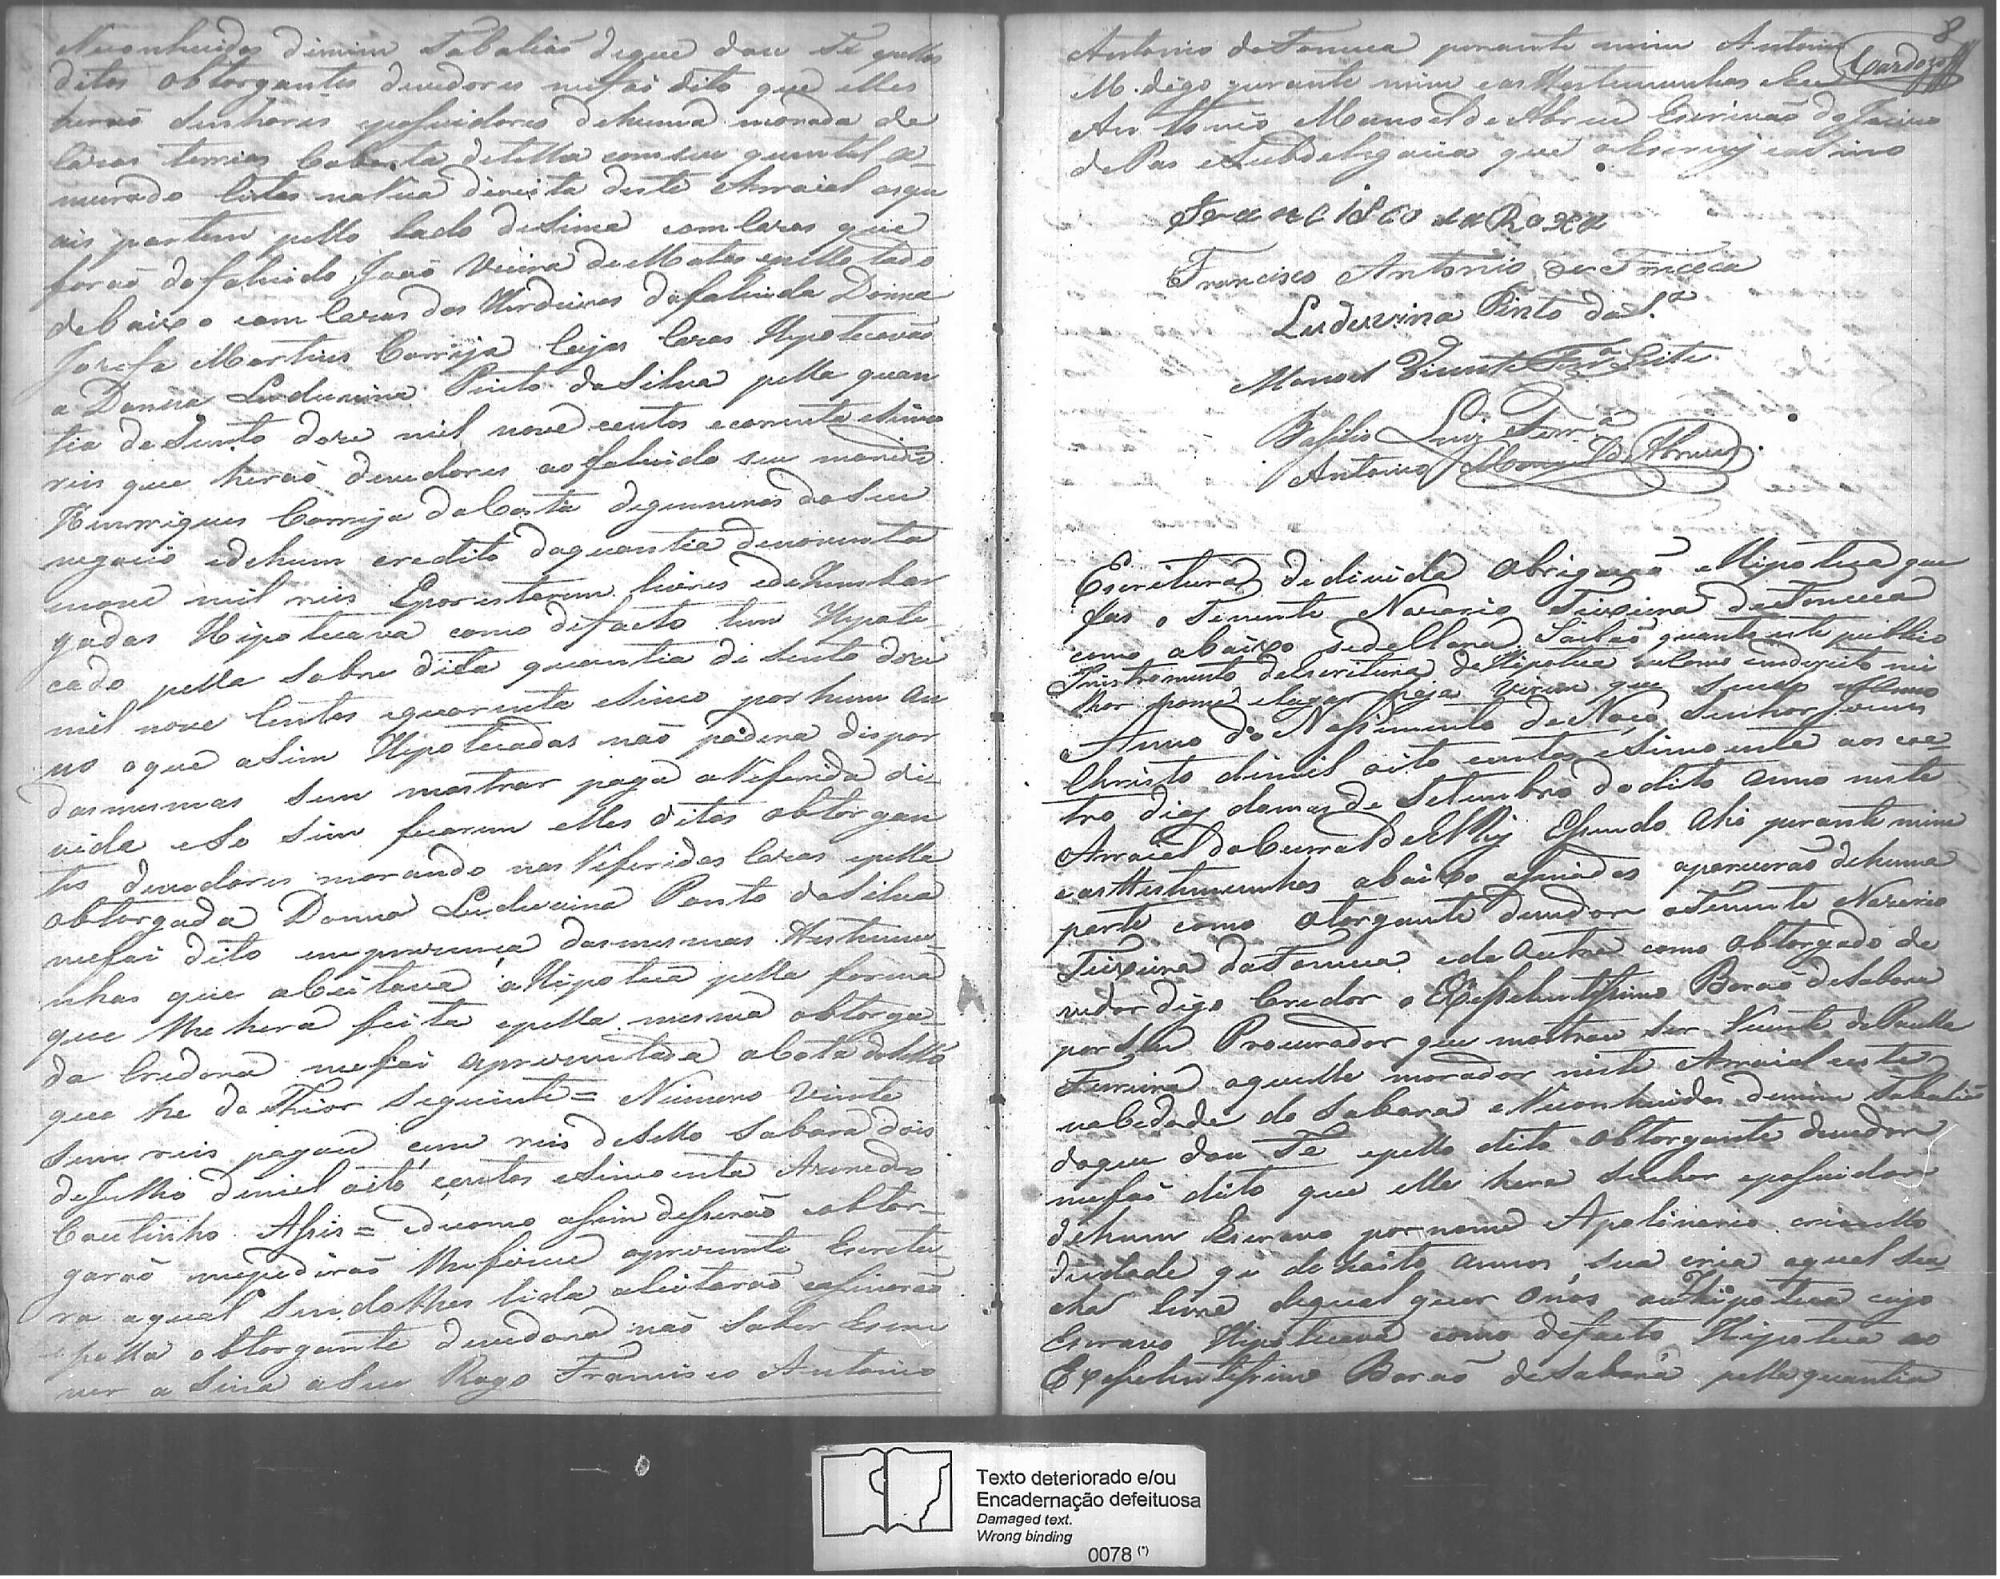 Reconhecidos demim Tabaliaõ deque dou Fé epellos
ditos obtorgantes devedores mefoi dito que elles
heraõ Senhores epossuidores dehuma morada de
Cazas terrias Coberta detelha comseu quintal a
murado Citas naRua direita deste Arraial asqu
ais partem pello lado desima comCazas que
foraõ dofalecido Joaõ Vieira deMatos epello lado
debaixo com Cazas dos Herdeiros dafalecida Donna
Jozefa Martins Correija Cujas Cazas Hypotecavaõ
a Donna Luduvina Pinto daSilva pella quan
tia deSento doze mil nove centos ecorenta esinco
reis que heraõ devedores aofalecido seu marido
Henrriques Correija daCosta degeneros doSeu
negocio edehum credito daquantia denoventa
enove mil reis Eporestarem livres edezembar
gadas Hipotecava como defacto tem Hypote
cado pella sobre dita quantia deSento doze
mil nove Centos equarenta esinco por hum an
no oque asim Hipotecadas naõ podera dispor
dasmesmas Sem mostrar paga aReferida di
vida eSo Sim ficarem elles ditos obtorgan
tes devedores morando nas Referidas Cazas epella
obtorgada Donna Luduvina Pinto daSilva
mefoi dito empresença dasmesmas Testemu
nhas que aCeitava aHipoteca pella forma
que lhe hera feita epella mesma obtorga
da Credora mefoi aprezentada aCota doSello
que he do Thior Seguinte = Numero vinte
Sem reis pagou cem reis deSello Sabara dois
deJulho demil oito centos eSincoenta Azeredo
Coutinho Assis = edecomo assim disseraõ eobtor
garaõ mepediraõ lhefizece aprezente Escretu
ra aqual Sendolhes lida aCeitaraõ easinaraõ
epella obtorgante devedora naõ Saber Escre
ver a Sina aSeu Rogo Francisco Antonio
8
Cardozo
Antonio daFonceca perante mim Antonio
M. digo perante mim easTestemunhas eEu
Antonio Manoel de Abreu Escrivaõ do Juizo
dePas eSubdelegacia que oEscrevy easino
Francisco Antonio da Fonceca
Luduvina Pinto daS.ª
Manoel Vicente Ferrª Leite
Bazilio Luiz Ferr.ª
Antonio Manoel De Abreu
Escritura de divida Obrigacaõ eHipoteca que
fas o Tenente Nazario Teixeira daFonceca
como abaixo sedeClara. Saibaõ quanto este publico
Instromento deEscritura deHipoteca
lhor nome elugar haja virem que Sendo no
Anno do Nassimento deNoço Senhor Jezus
Christo demil oito centos eSincoenta aos coa
tro dias domes de Setembro dodito anno neste
Arraial doCurral DelRej Esendo Ahi perante mim
easTestemunhas abaixo asinados aparceraõ dehuma
parte como Otorgante devedor oTenente Nazario
Teixeira daFonceca eda outra como obtorgado de
vedor digo Credor o Excellentissimo Baraõ deSabara
por Seu Procurador que mostrou ser Vicente dePaulla
Ferreira aquelle morador neste Arraial eeste
naCedade do Sabara eReconhecidos demim Tabaliaõ
doque dou Fé epello dito Obtorgante devedor
mefoi dito que elle hera Senhor epossuidor
dehum Escravo pornome Apolinario crioullo
deidade de dezoito annos, sua cria aqual sea
cha livre dequal quer onos ouHipoteca cujo
Escravo Hipotecava como defacto Hipoteca ao
Excellentissimo Baraõ deSabará pellaquantia
Texto deteriorado e/ou
Encadernação defeituosa
Damaged text.
Wrong binding
0078 (*)